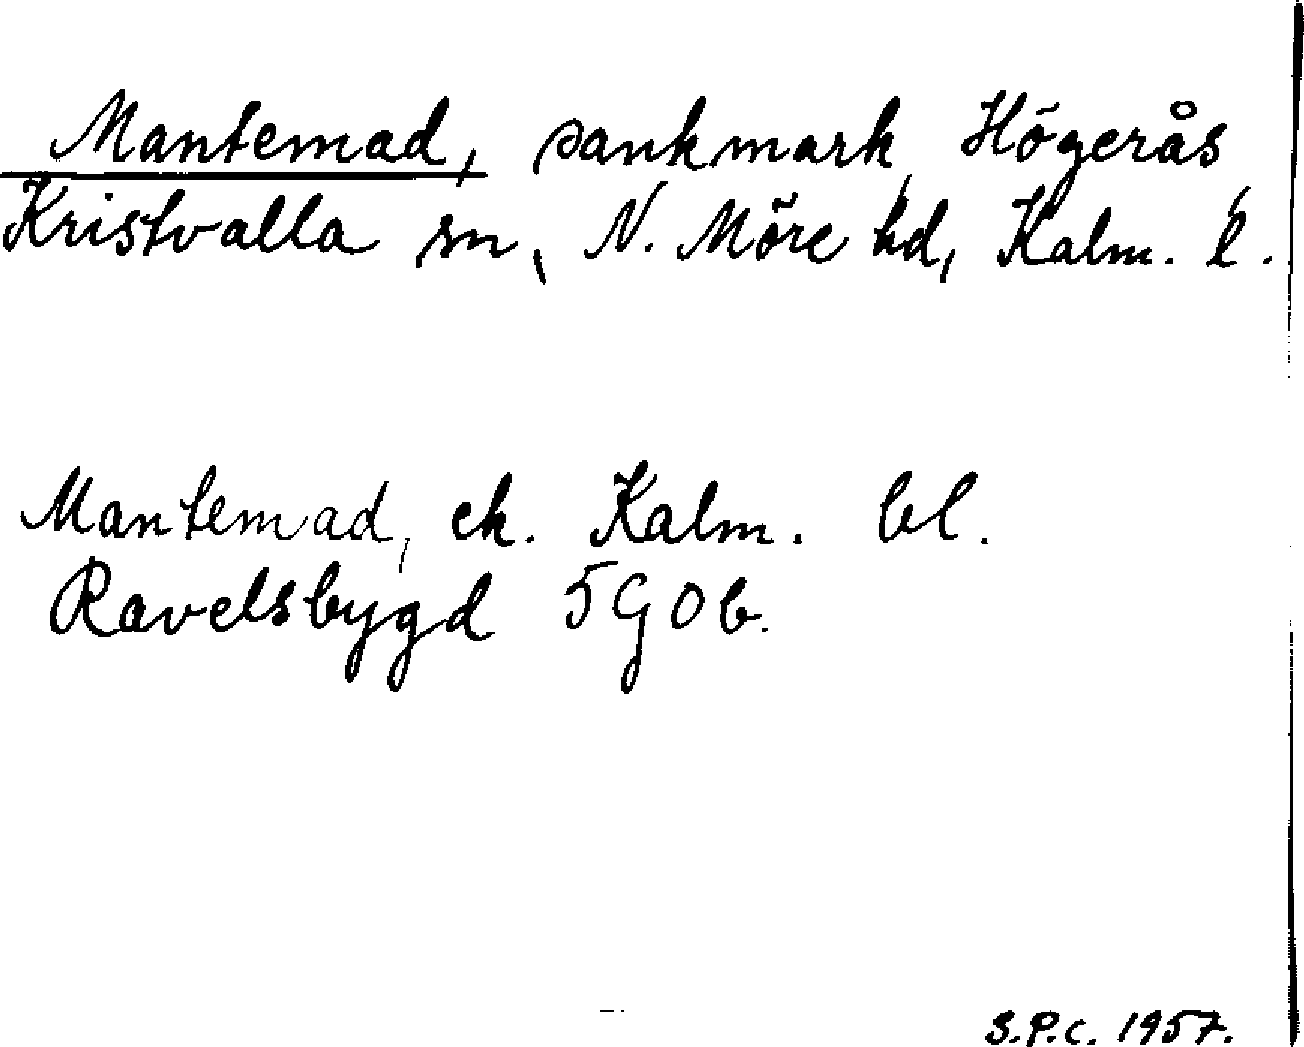 Mantemad, sankmark, Högerås
Kristvalla sn, N. Möre hd, Kalm. l.
Mantemad, ek. Kalm. bl.
Ravelsbygd 5G0b.
S.P.C. 1957.